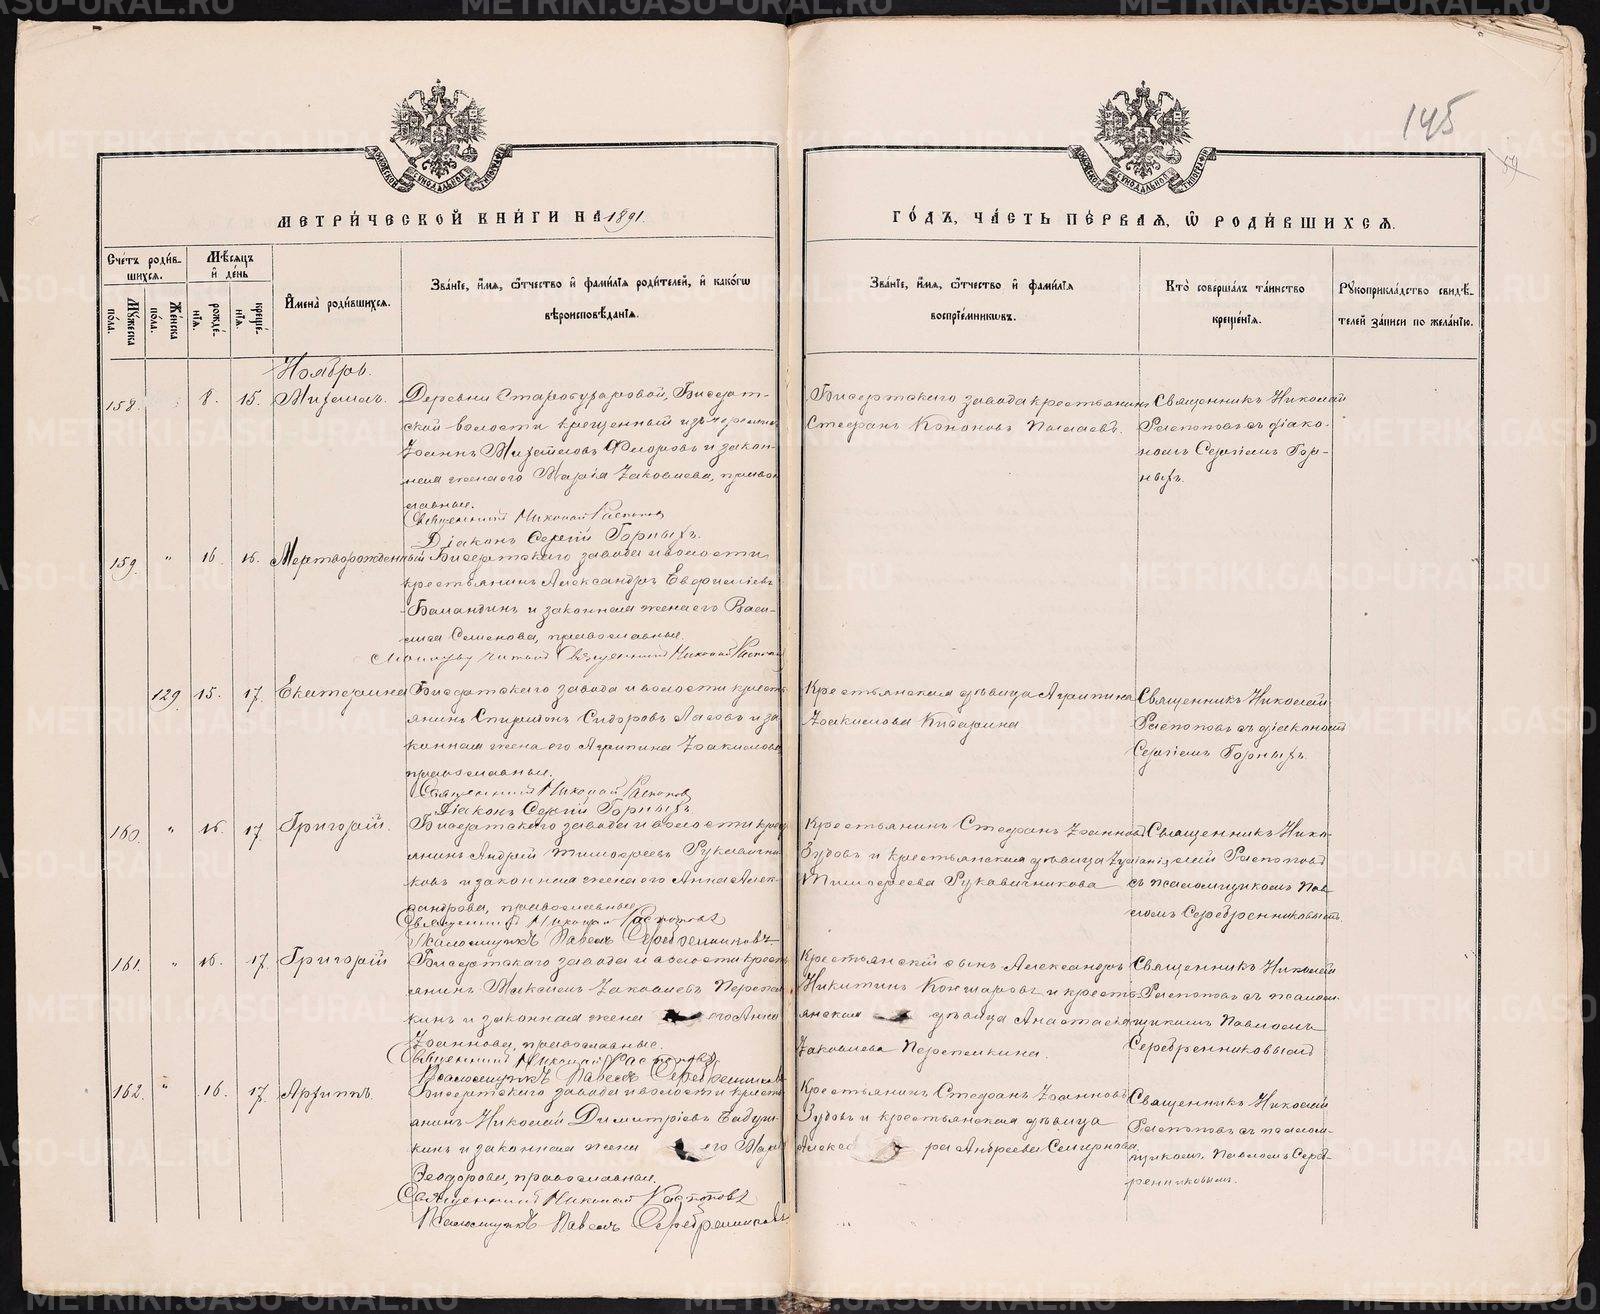 METRIKI.GASO-URAL.RU
145
МЕТРИ́ЧЕСКОЙ КНИ́ГИ НА 1891.
ГО́ДЪ, ЧА́СТЬ ПЕ́РВАЯ, Ѡ РОДИ́ВШИХСЯ.
Сче́тъ роди́вшихся.
Му́жеска по́ла.
Же́нска по́ла.
Мѣ́сяцъ и҆ де́нь
рожде́нїя.
креще́нїя.
И҆мена̀ роди́вшихся.
Зва́нїе, и҆́мя, ѻ҆́тчество и҆ фами́лїя роди́телей, и҆ како́гѡ
вѣроисповѣ́данїя.
Зва́нїе, и҆́мя, ѻ҆́тчество и҆ фами́лїя
воспрїе́мниковъ.
Кто̀ соверша́лъ та́инство
креще́нїя.
Рꙋкоприкла́дство свидѣ́-
телей за́писи по жела́нїю.
Ноябрь.
158. 8. 15. Михаилъ. Деревни Старобухаровой, Бисерт-
ской волости крещенный изъ черемисъ
Іоаннъ Михаиловъ Флоровъ и закон-
ная жена его Марія Іаковлева, право-
славные.
Священникъ Николай Распоповъ
Діаконъ Сергій Горныхъ.
Бисертскаго завода крестьянинъ
Стефанъ Кононовъ Палаевъ.
Священникъ Николай
Распоповъ съ діако-
номъ Сергіемъ Гор-
ныхъ.
159. " 16 16. Мертворожденный Бисертскаго завода и волости
крестьянинъ Александръ Евфиміевъ
Баландинъ и законная жена его Васи-
лиса Семенова, православные.
Молитву читалъ Священникъ Николай Распоповъ
129. 15. 17. Екатерина Бисертскаго завода и волости кресть-
янинъ Спиридонъ Сидоровъ Ласовъ и за-
конная жена его Агрипина Іоакимова,
православные.
Священникъ Николай Распоповъ
Діаконъ Сергій Горныхъ.
Крестьянская дѣвица Агрипина
Іоакимова Кисарина
Священникъ Николай
Распоповъ съ діакономъ
Сергіемъ Горныхъ.
160. " 16. 17. Григорій. Бисертскаго завода и волости кресть-
янинъ Андрей Тимофеевъ Рукавични-
ковъ и законная жена его Анна Алек-
сандрова, православные.
Священникъ Николай Распоповъ
Псаломщикъ Павелъ Серебренниковъ
Крестьянинъ Стефанъ Іоанновъ
Зубовъ и крестьянская дѣвица Іуліанія
Тимофеева Рукавичникова
Священникъ Нико-
лай Распоповъ
съ псаломщикомъ Пав-
ломъ Серебренниковымъ
161. " 16. 17. Григорій Бисертскаго завода и волости кресть-
янинъ Максимъ Іаковлевъ Перепел-
кинъ и законная жена его Анна
Іоаннова, православные.
Священникъ Николай Распоповъ
Псаломщикъ Павелъ Серебренниковъ
Крестьянскій сынъ Александръ
Никитинъ Коншаровъ и кресть-
янская дѣвица Анастасія
Іаковлева Перепелкина.
Священникъ Николай
Распоповъ съ псалом-
щикомъ Павломъ
Серебренниковымъ
162. " 16. 17. Архиппъ. Бисертскаго завода и волости кресть-
янинъ Николай Димитріевъ Бабуш-
кинъ и законная жена его Марія
Ѳеодорова, православные.
Священникъ Николай Распоповъ
Псаломщикъ Павелъ Серебренниковъ
Крестьянинъ Стефанъ Іоанновъ
Зубовъ и крестьянская дѣвица
Алекса ра Андреева Смирнова.
Священникъ Николай
Распоповъ съ псалом-
щикомъ Павломъ Сереб-
ренниковымъ.